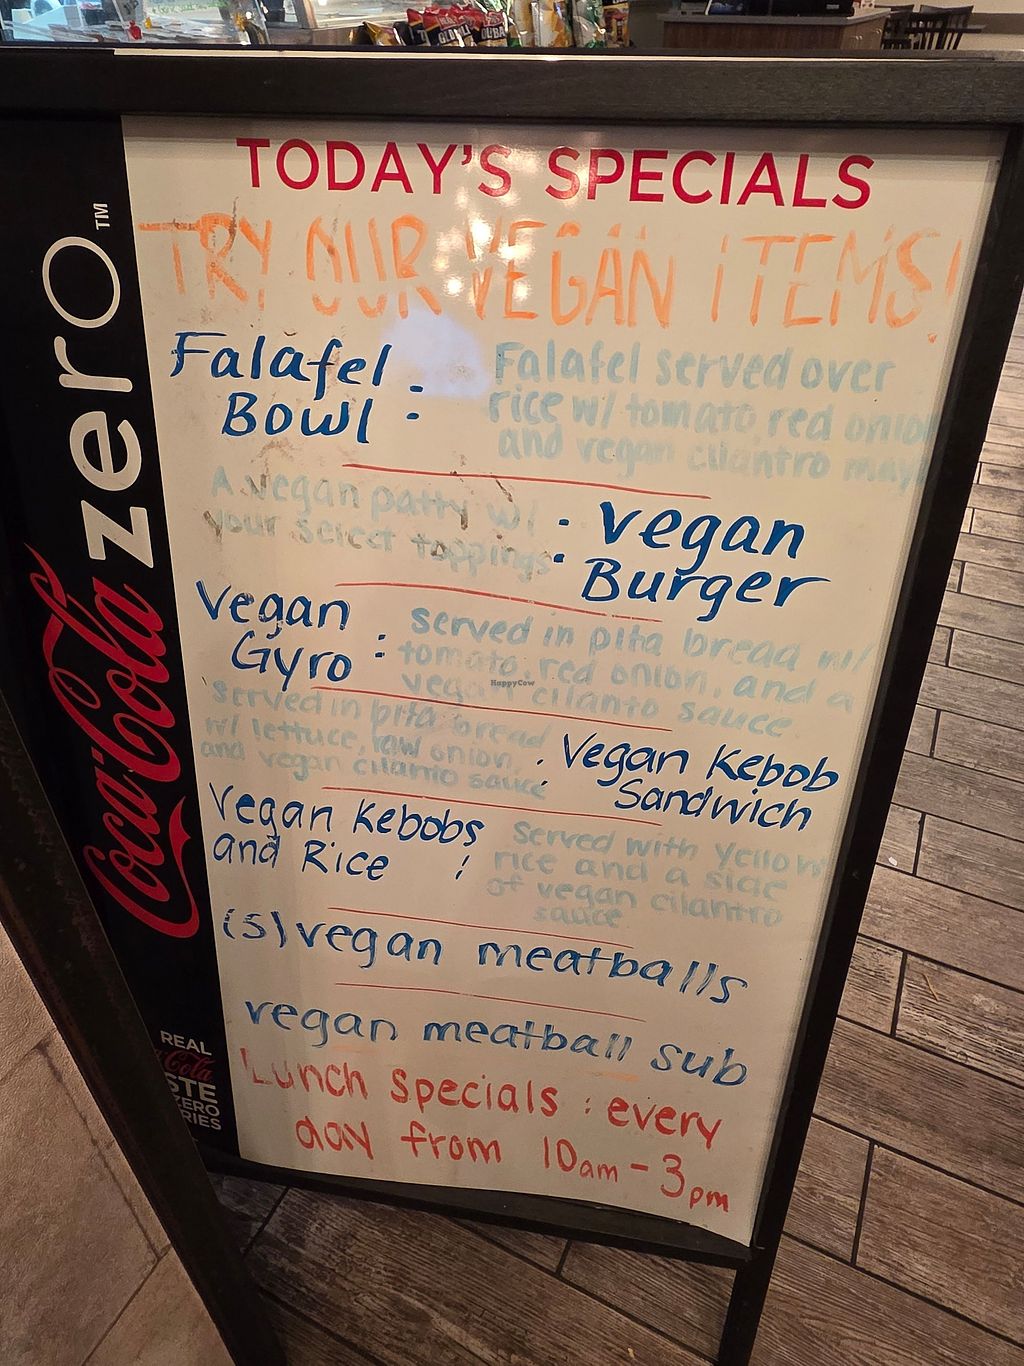 TODAY'S SPECIALS
TRY OUR VEGAN ITEMS!
Falafel
Bowl :
Falafel served over
rice w/ tomato, red onion
and vegan cilantro mayo
A vegan patty w/
your select toppings
: vegan
Burger
Vegan
Gyro :
served in pita bread w/
tomato, red onion, and a
vegan cilanto sauce
HappyCow
served in pita bread
w/ lettuce, raw onion,
and vegan cilanto sauce
: Vegan Kebob
Sandwich
Vegan Kebobs
and Rice :
served with yellow
rice and a side
of vegan cilantro
sauce
(5) vegan meatballs
vegan meatball sub
Lunch specials : every
day from 10am - 3pm
Coca-Cola zero™
REAL
Coca-Cola
ZERO